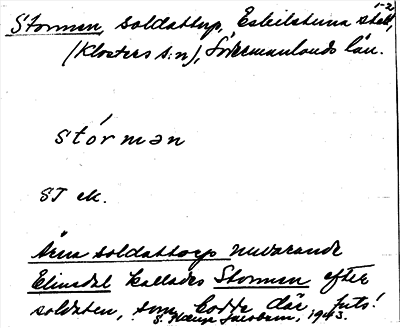 1-2
Stormen, soldattorp, Eskilstuna stad,
(Klosters s:n), Södermanlands län.
stórmən
ST ek.
Ännu soldattorp nuvarande
Elinsdal kallades Stormen efter
soldaten, som bodde där förts!
S. 1943.